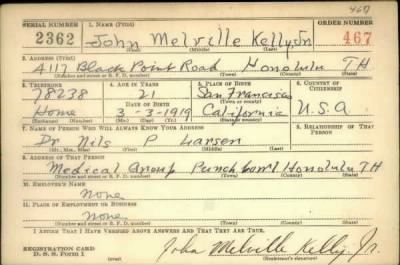 467
SERIAL NUMBER 1. NAME (Print) ORDER NUMBER
2362 John Melville Kelly, Jr. 467
(First) (Middle) (Last)
2. ADDRESS (Print)
4117 Black Point Road Honolulu TH
(Number and street or R. F. D. number) (Town) (County) (State)
3. TELEPHONE 4. AGE IN YEARS 5. PLACE OF BIRTH 6. COUNTRY OF CITIZENSHIP
78238 21 San Francisco
DATE OF BIRTH (Town or county)
Home 3-3-1919 California U.S.A
(Exchange) (Number) (Mo.) (Day) (Yr.) (State or country)
7. NAME OF PERSON WHO WILL ALWAYS KNOW YOUR ADDRESS 8. RELATIONSHIP OF THAT PERSON
Dr Nils P Larsen
(Mr., Mrs., Miss) (First) (Middle) (Last)
9. ADDRESS OF THAT PERSON
Medical Group Punchbowl Honolulu TH
(Number and street or R. F. D. number) (Town) (County) (State)
10. EMPLOYER'S NAME
None
11. PLACE OF EMPLOYMENT OR BUSINESS
None
(Number and street or R. F. D. number) (Town) (County) (State)
I AFFIRM THAT I HAVE VERIFIED ABOVE ANSWERS AND THAT THEY ARE TRUE.
REGISTRATION CARD
D. S. S. FORM 1 John Melville Kelly, Jr.
(Registrant's signature)